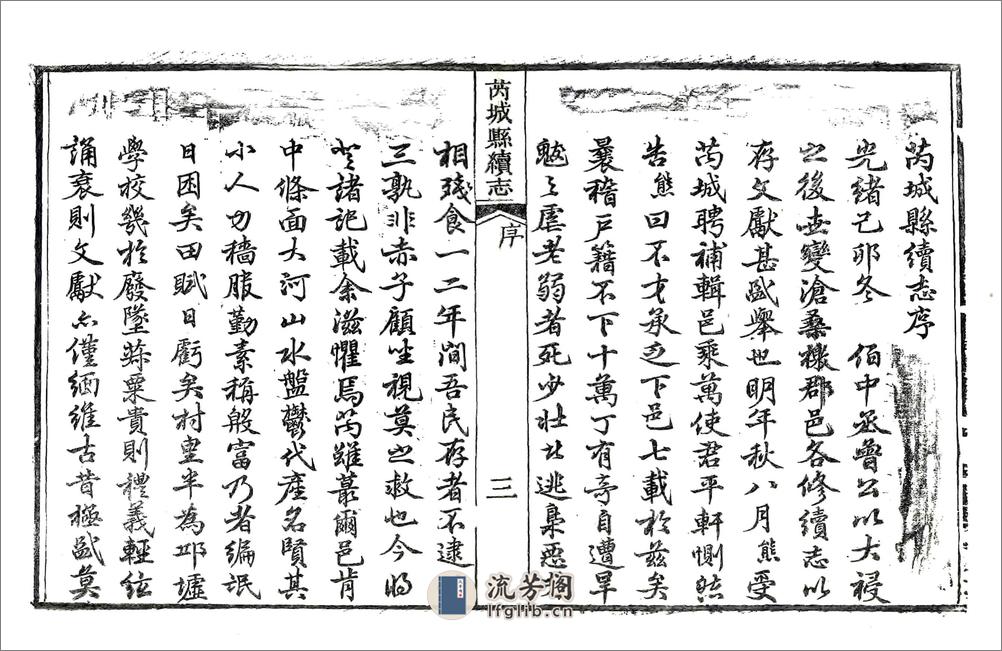 芮城縣續志序
光緒己卯冬　伯中丞曾公以大祲
之後世變滄桑檄郡邑各修續志以
存文獻甚盛舉也明年秋八月熊受
芮城聘補輯邑乘萬使君平軒惻然
告熊曰不才承乏下邑七載於茲矣
曩稽戶籍不下十萬丁有奇自遭旱
魃之虐老弱者死少壯者逃梟惡
芮城縣續志
序
三
相殘食一二年間吾民存者不逮
三孰非赤子顧坐視莫之救也今將
登諸記載余滋懼焉芮雖蕞爾邑背
中條面大河山水盤鬱代產名賢其
小人力穡服勤素稱殷富乃者編氓
日困矣田賦日虧矣村里半為邱墟
學校幾於廢墜菽粟貴則禮義輕絃
誦衰則文獻亡僅緬維古昔極盛莫
流芳閣
lfglib.cn